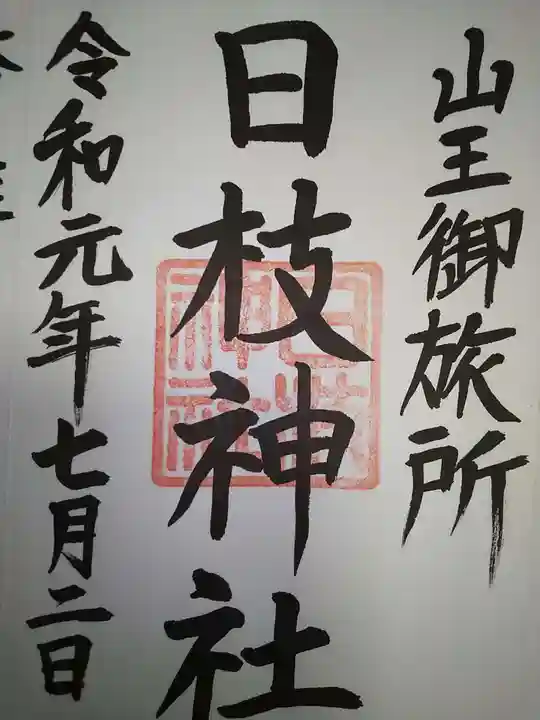 山王御旅所
日枝神社
令和元年七月二日
日枝神社